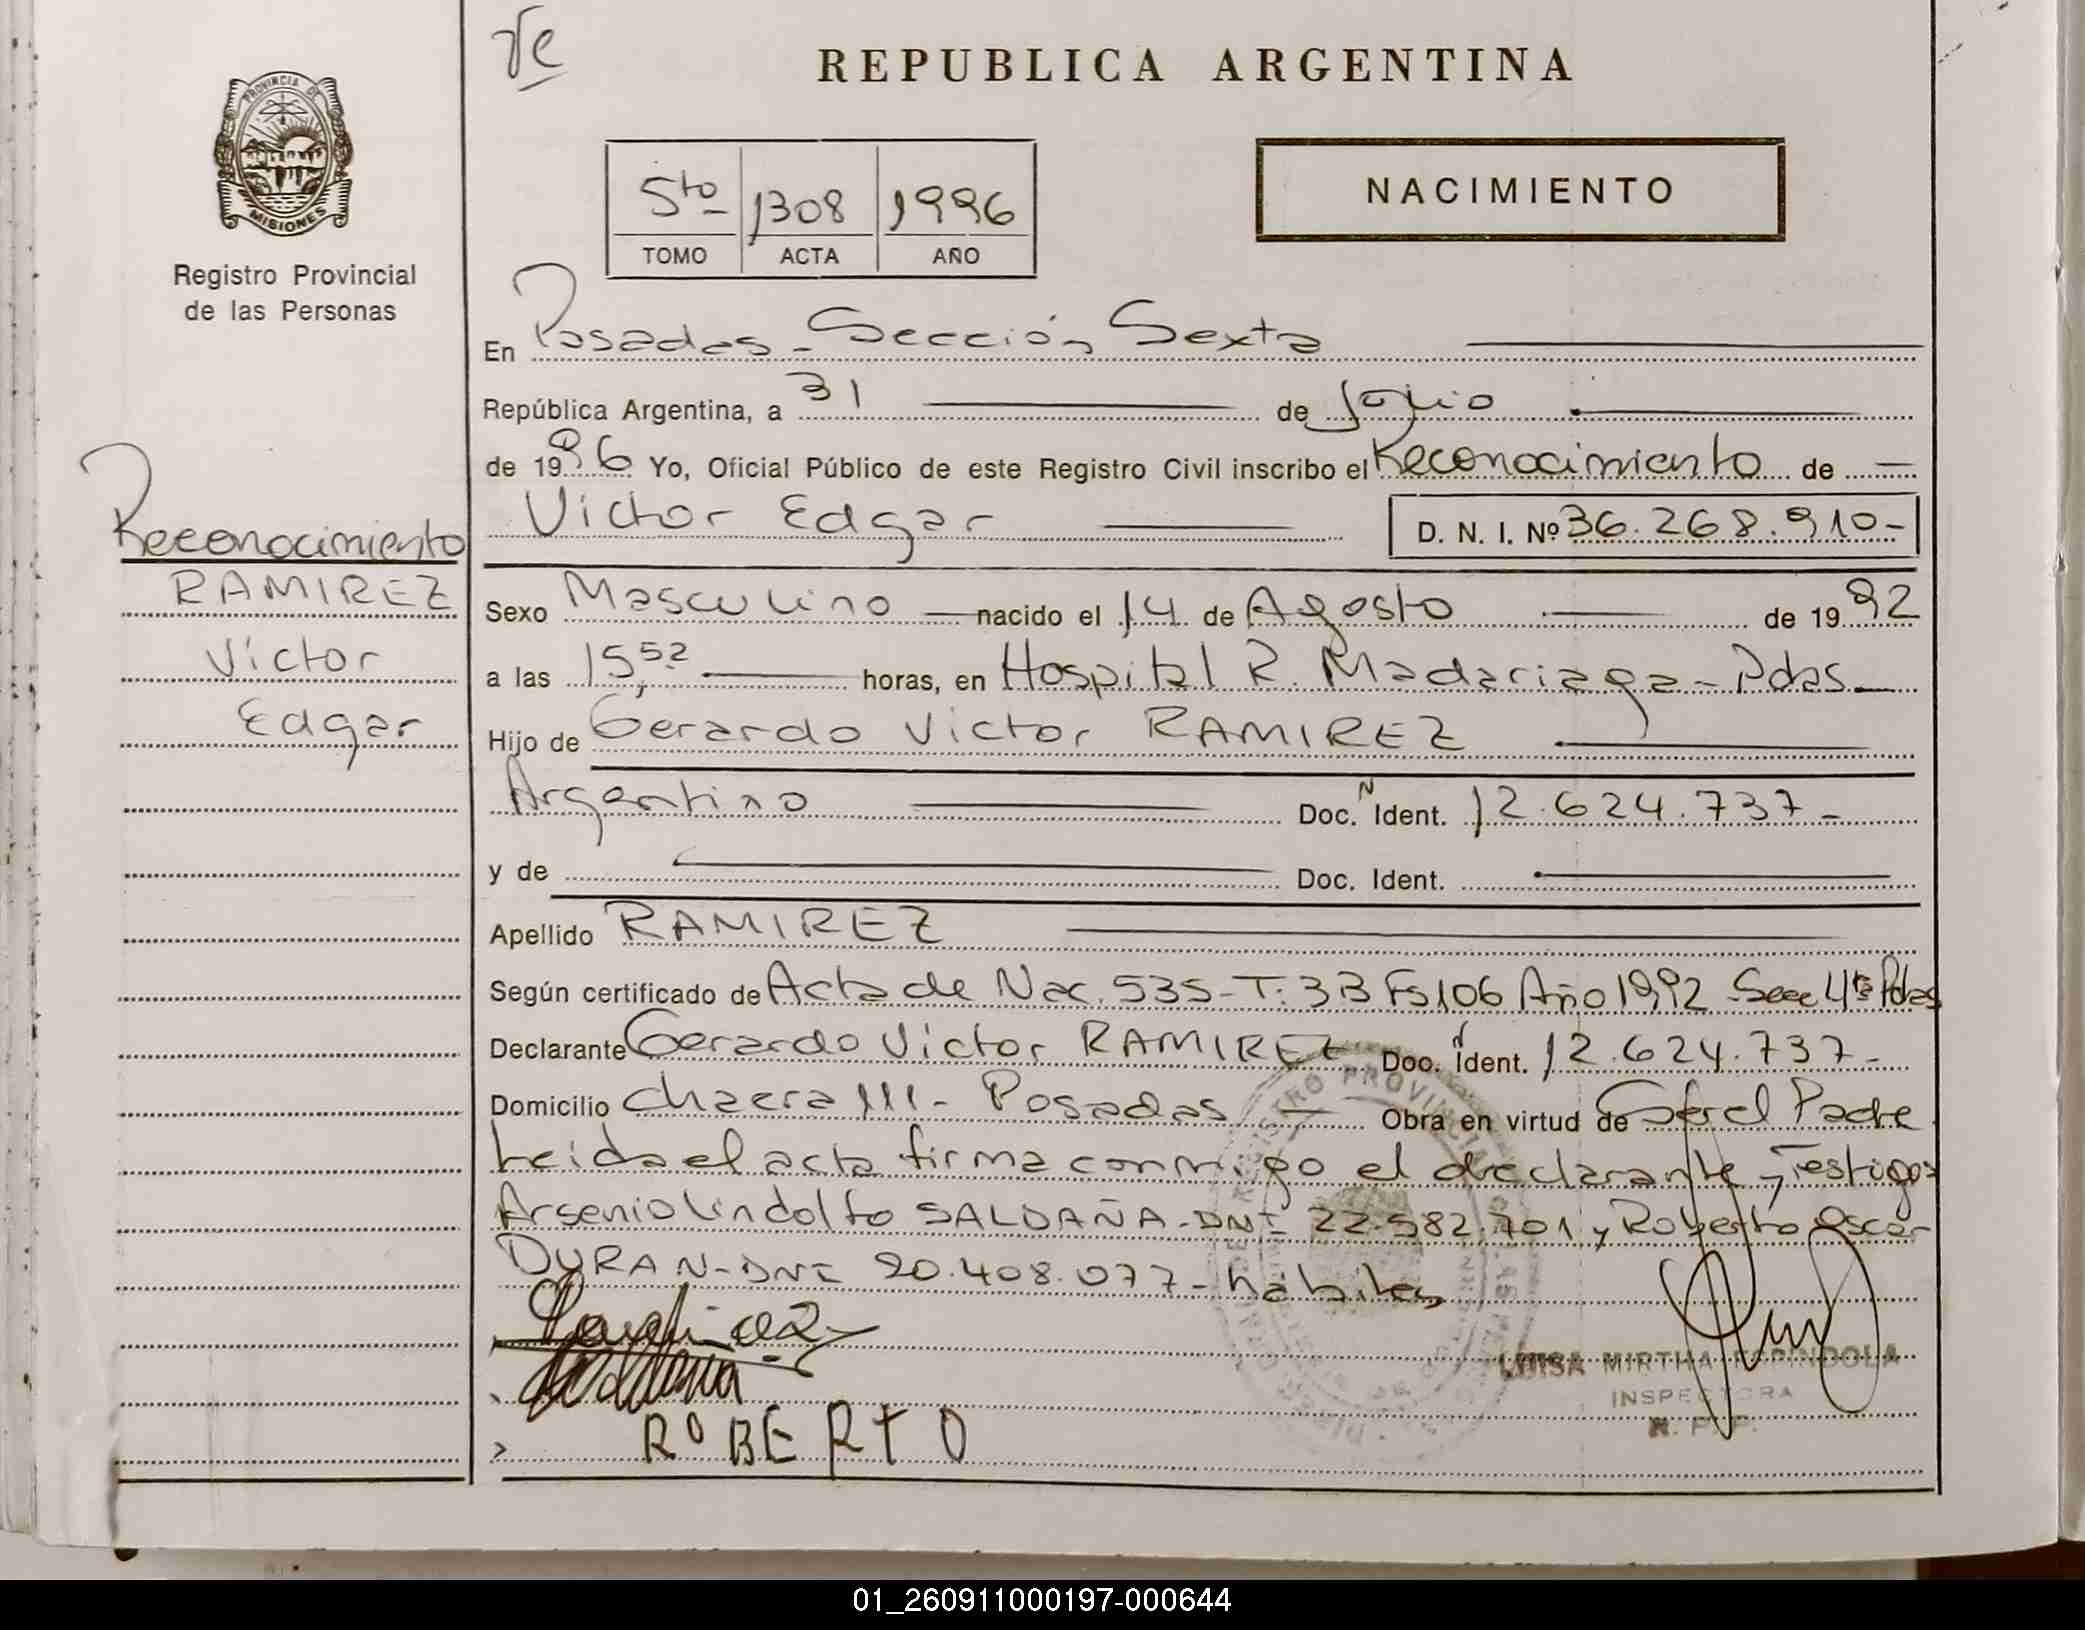 REPUBLICA ARGENTINA
PROVINCIA DE
MISIONES
Registro Provincial
de las Personas
5to 1308 1996
TOMO ACTA AÑO
NACIMIENTO
En Posadas - Sección Sexta
República Argentina, a 31 de Julio
de 1996 Yo, Oficial Público de este Registro Civil inscribo el Reconocimiento de
Victor Edgar D. N. I. Nº 36.268.910-
Reconocimiento
RAMIREZ
Victor
Edgar
Sexo Masculino nacido el 14 de Agosto de 1992
a las 15,52 horas, en Hospital R. Madariaga - Pdas
Hijo de Gerardo Victor RAMIREZ
Argentino Doc. N Ident. 12.624.737-
y de Doc. Ident.
Apellido RAMIREZ
Según certificado de Acta de Nac. 535-T: 3B Fs 106 Año 1992 Secc 4ta Pdas
Declarante Gerardo Victor RAMIREZ Doc. N Ident. 12.624.737-
Domicilio Chacra 111 - Posadas Obra en virtud de Ser el Padre
Leida el acta firma conmigo el declarante y Testigos
Arsenio Lindolfo SALDAÑA - DNI 22.582.701 y Roberto Oscar
DURAN - DNI 20.408.077 - habiles
ROBERTO
LUISA MIRTHA ESPINDOLA
INSPECTORA
R. P. P.
01_260911000197-000644